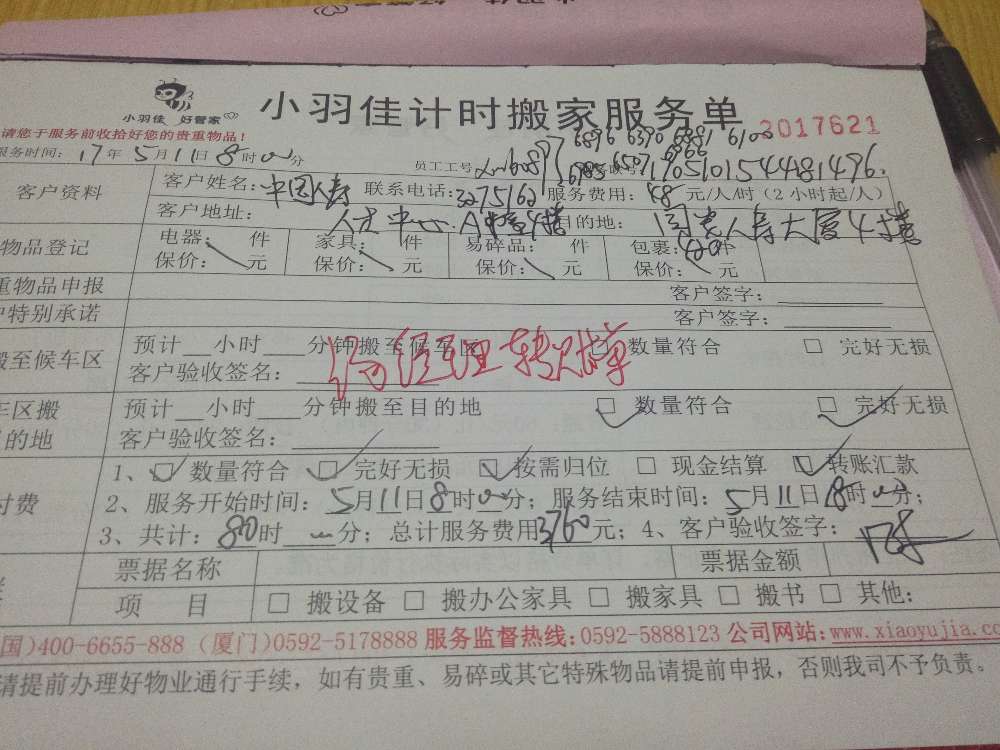 小羽佳 好管家
小羽佳计时搬家服务单
请您于服务前收拾好您的贵重物品!
2017621
服务时间: 17年5月11日8时00分
员工工号
6896 6390 6881 6100
170510154481496
客户资料
客户姓名: 中国人寿 联系电话: 3275162 服务费用: 48元/人/时 (2小时起/人)
客户地址: 人才中心A 4楼 目的地: 国寿人寿大厦4楼
物品登记
电器: 件 家具: 件 易碎品: 件 包裹: 件
保价: 元 保价: 元 保价: 元 保价: 元
重物品申报 客户签字:
特别承诺 客户签字:
搬至候车区 预计 小时 分钟搬至候车区 数量符合 □ 完好无损
客户验收签名:
经理转账单
车区搬 预计 小时 分钟搬至目的地 □ 数量符合 □ 完好无损
目的地 客户验收签名:
1、□ 数量符合 □ 完好无损 □ 按需归位 □ 现金结算 □ 转账汇款
付费 2、服务开始时间: 5月11日8时00分; 服务结束时间: 5月11日18时00分;
3、共计: 80时 分; 总计服务费用3760元; 4、客户验收签字:
票据名称 票据金额
项 目 □ 搬设备 □ 搬办公家具 □ 搬家具 □ 搬书 □ 其他:
国)400-6655-888 (厦门)0592-5178888 服务监督热线:0592-5888123 公司网站:www.xiaoyujia.co
请提前办理好物业通行手续, 如有贵重、易碎或其它特殊物品请提前申报, 否则我司不予负责。